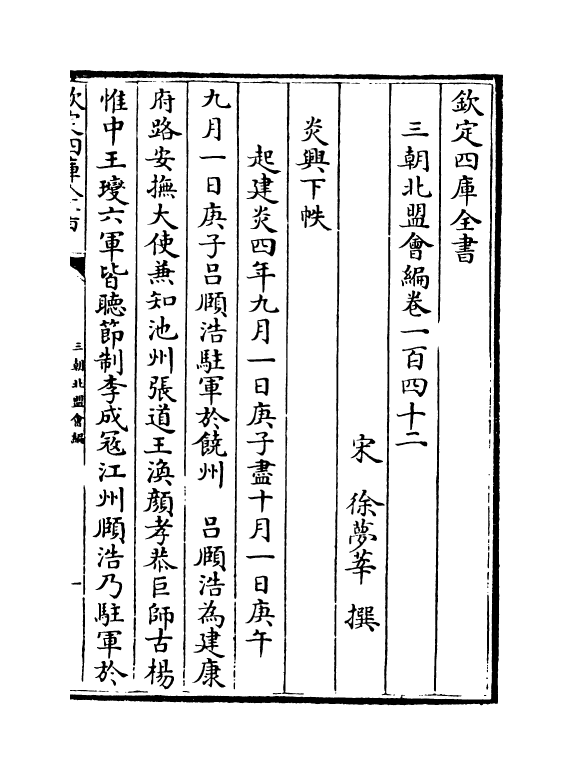 欽定四庫全書
三朝北盟會編卷一百四十二
宋 徐夢莘 撰
炎興下帙
起建炎四年九月一日庚子盡十月一日庚午
九月一日庚子呂頤浩駐軍於饒州 呂頤浩為建康
府路安撫大使兼知池州張道王渙顔孝恭巨師古楊
惟中王𤫉六軍皆聽節制李成冦江州頤浩乃駐軍於
欽定四庫全書
三朝北盟會編
一